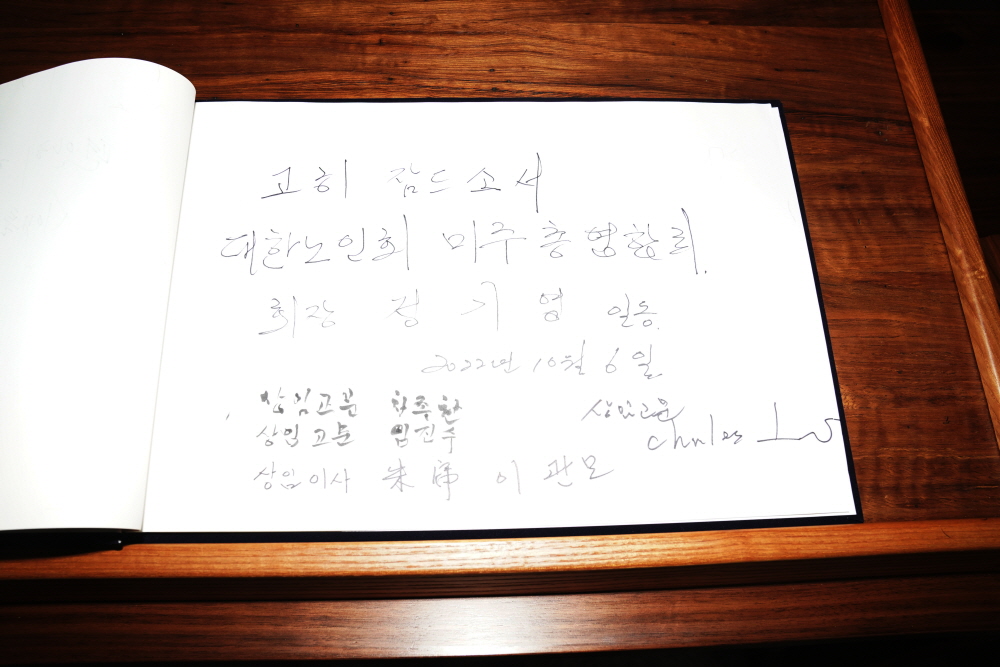 고히 잠드소서
대한노인회 미주총연합회.
회장 정 기 영 일동.
2022년 10월 6일
상임고문 차종환
상임고문 임진수
상임고문
Charles
상임이사 朱 이관모